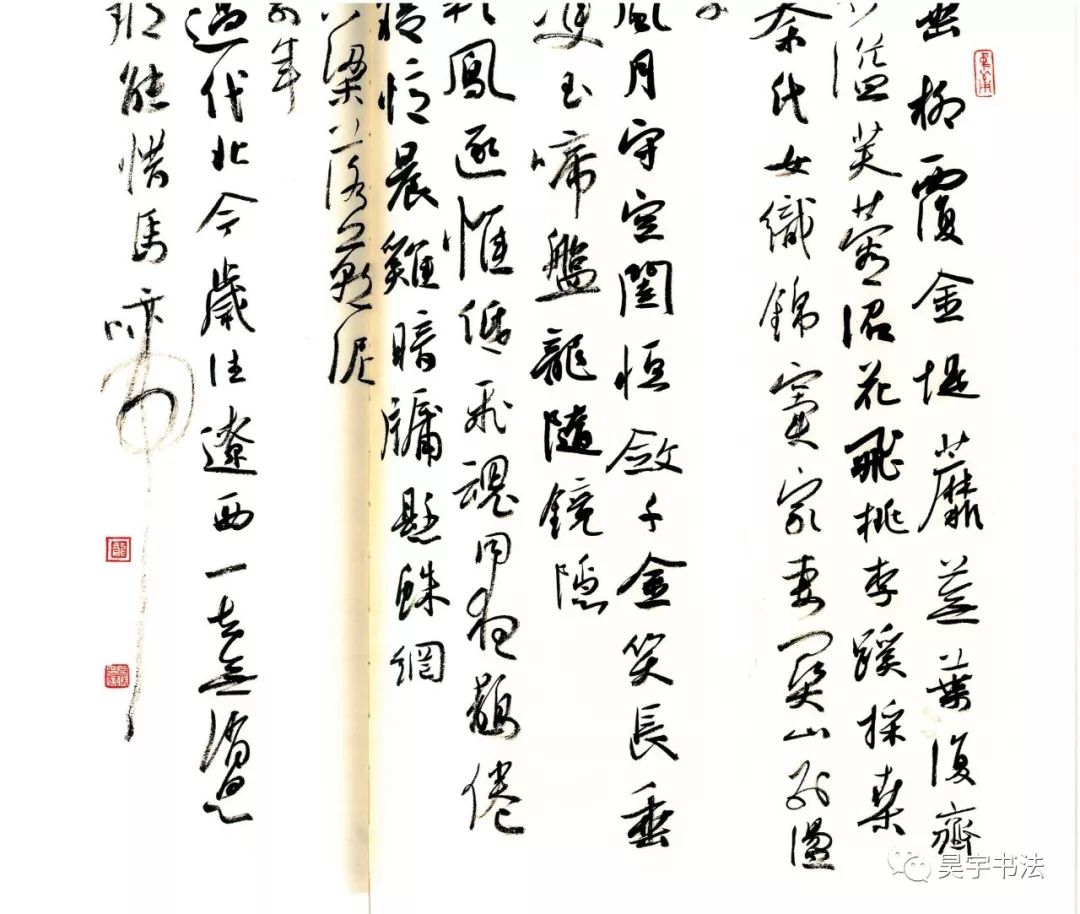 垂柳覆金堤蘼蕪葉復齊
水溢芙蓉沼花飛桃李蹊採桑
秦氏女織錦竇家妻關山別蕩
子
風月守空閨恒斂千金笑長垂
雙玉啼盤龍隨鏡隱
彩鳳逐帷低飛魂同夜鵲倦
寢憶晨雞暗牖懸蛛網
空梁落燕泥
前年
過代北今歲往遼西一去無消息
那能惜馬蹄
昊宇书法